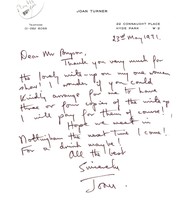 JOAN TURNER
TELEPHONE
22 CONNAUGHT PLACE
HYDE PARK W 2
23rd May 1991.
Dear Mr
Thank you very much for
the lovely write-up on my one woman
show! I wonder if you could
kindly arrange for me to have
three or four copies of the write up
I will pay for them of course!
Hope we meet in
Nottingham the next time I come!
For a drink maybe!
All the best
Sincerely
Joan.